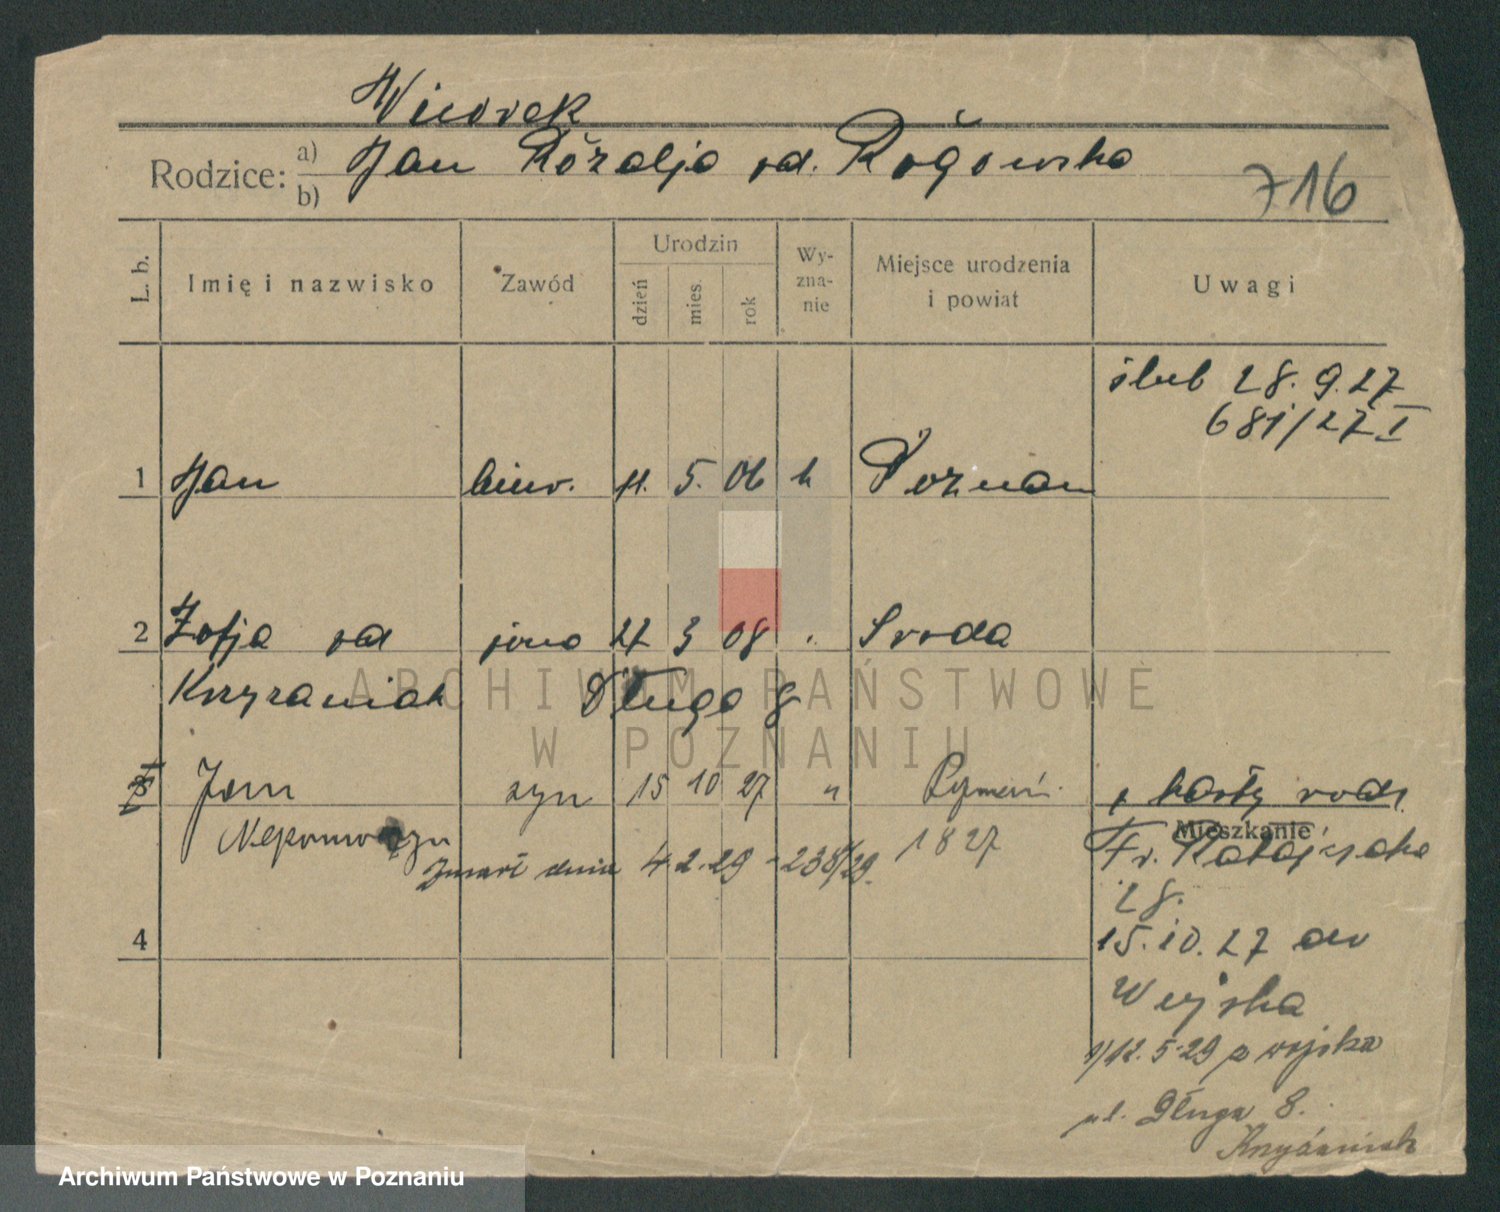 Wiciorek
Rodzice: a) Jan Rózalja od. Rogowska
b)
716
L. b. Imię i nazwisko Zawód Urodzin dzień mies. rok Wy-zna-nie Miejsce urodzenia i powiat Uwagi
ślub 28. 9. 27
681/27 I
1 Jan 11. 5. 06 k Poznań
2 Zofja od żona 27 3 08 " Sroda
Krzyzaniak Długa 8
3 Jan syn 15 10 27 " Poznań z karty rodz.
Nepomucyn 1827
Mieszkanie
Fr. Ratajczaka
Zmarł dnia 4. 2. 29 - 238/29.
28.
4 15. 10. 27 do
Wojska
1/12. 5. 29 z wojska
ul. Długa 8.
Krzyżaniak
ARCHIWUM PAŃSTWOWE
W POZNANIU
Archiwum Państwowe w Poznaniu